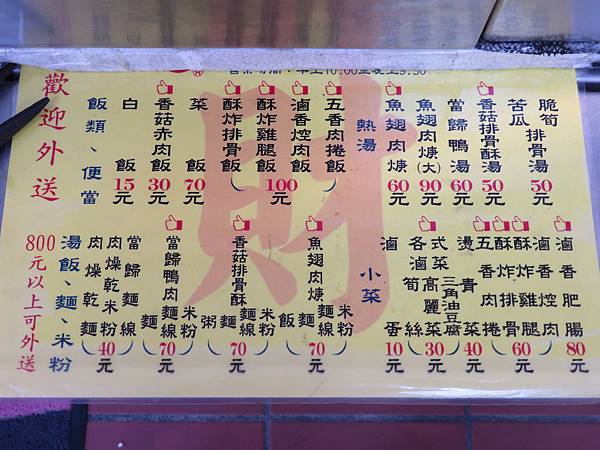 歡迎外送
800元以上可外送
飯類、便當
白飯
15元
香菇赤肉飯
30元
菜飯
70元
酥炸排骨飯
酥炸雞腿飯
滷香焢肉飯
五香肉捲飯
100元
熱湯
魚翅肉焿
60元
魚翅肉焿(大)
90元
當歸鴨湯
60元
香菇排骨酥湯
50元
苦瓜
脆筍
排骨湯
50元
湯飯、麵、米粉
肉燥乾麵
肉燥乾米粉
當歸麵線
40元
當歸鴨肉
麵
麵線
米粉
70元
香菇排骨酥
粥
麵
麵線
米粉
70元
魚翅肉焿
飯
麵
麵線
米粉
70元
小菜
滷蛋
10元
各式滷菜
筍絲
高麗菜
三角油豆腐
30元
燙青菜
40元
五香肉捲
酥炸排骨
酥炸雞腿
滷香焢肉
60元
滷香肥腸
80元
財